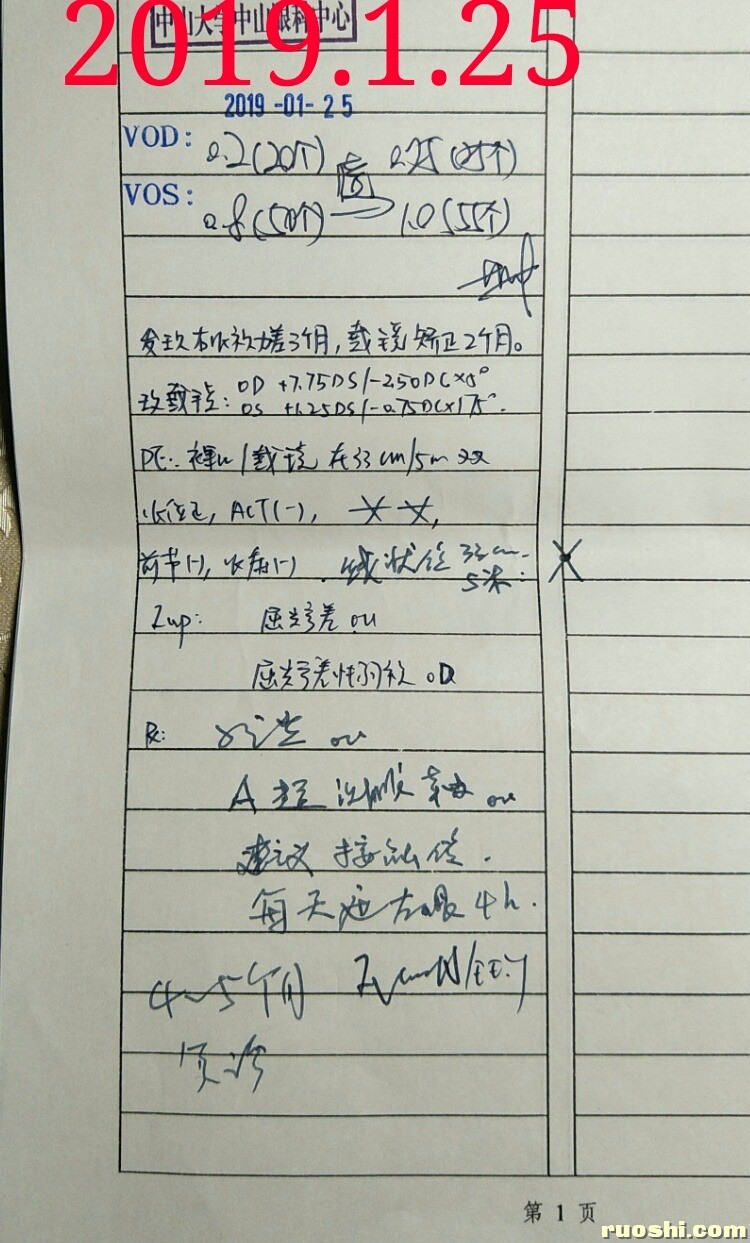 中山大学中山眼科中心
2019.1.25
2019-01-25
VOD: 0.2(20个) 0.25(25个)
VOS: 0.8(50个) 1.0(55个)
发现右眼视力差3个月,戴镜矫正2个月。
现戴镜: OD +7.75DS/-2.50DC×5°
OS +1.25DS/-0.75DC×175°.
PE: 裸眼/戴镜 在33cm/5m 双
眼位正, ACT(-),
前节(-), 眼底(-). 线状镜 33cm.
5米:
Imp: 屈光参差 ou
屈光参差性弱视 OD
Rx: ou
A ou
建议
每天遮左眼4h.
4~5个月
复诊
第 1 页
ruoshi.com